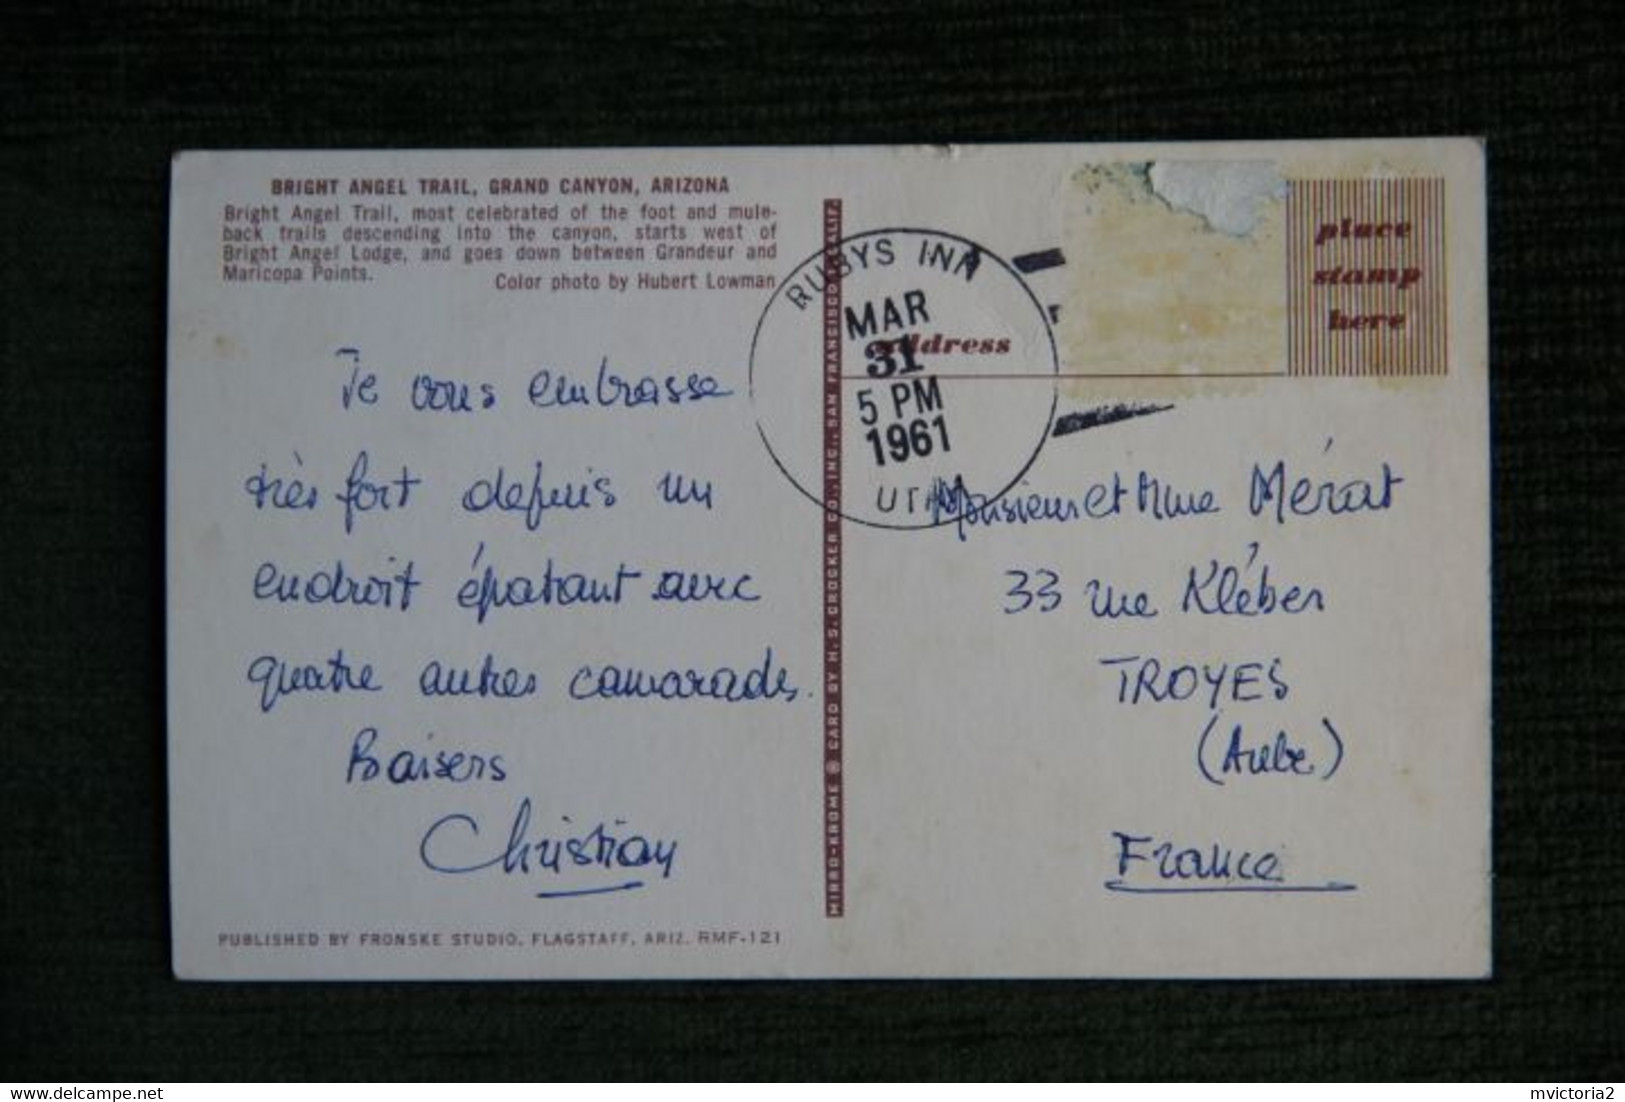 BRIGHT ANGEL TRAIL, GRAND CANYON, ARIZONA
Bright Angel Trail, most celebrated of the foot and mule-
back trails descending into the canyon, starts west of
Bright Angel Lodge, and goes down between Grandeur and
Maricopa Points.
Color photo by Hubert Lowman
Je vous embrasse
très fort depuis un
endroit épatant avec
quatre autres camarades.
Baisers
Christian
PUBLISHED BY FRONSKE STUDIO, FLAGSTAFF, ARIZ. RMF-121
MIRRO-KROME ® CARD BY H. S. CROCKER CO., INC., SAN FRANCISCO, CALIF.
RUBYS INN
MAR
31
5 PM
1961
UTAH
address
place
stamp
here
Monsieur et Mme Mérat
33 rue Kléber
TROYES
(Aube)
France
mvictoria2